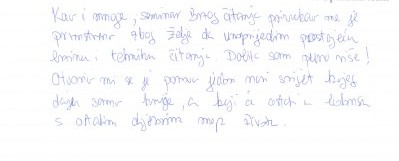 Kao i mnoge, seminar Brzog čitanja privukao me je
prvenstveno zbog želje da unaprijedim postojeću
brzinu i tehniku čitanja. Dobila sam puno više!
Otvorio mi se je pomoću jedan novi svijet kojeg
dajem samo bolje, a koji će ostati u
s ostalim djelovima mog života.